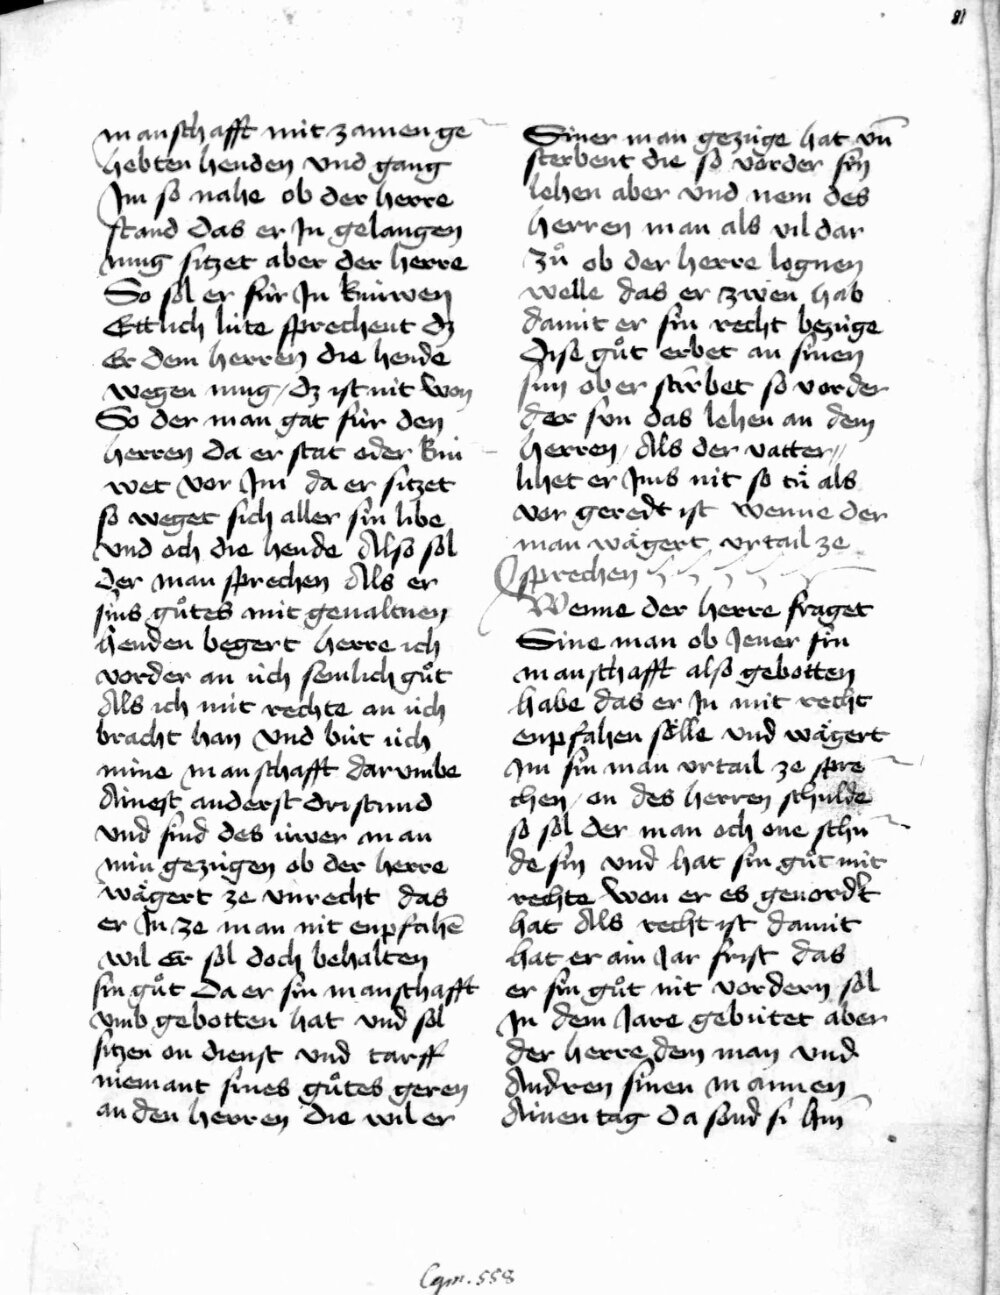 81
manschafft mit zamen ge
hebten henden vnd gang
Jm so nahe ob der herre
stand das er Jn gelangen
mug sitzet aber der herre
So sol er für Jn knüwen
Ettlich lüte sprechent dz
Er dem herren die hende
wegen mug / dz ist nit won
So der man gat für den
herren da er stat oder knü
wet vor Jm da er sitzet
so weget sich aller sin libe
vnd och die hende Also sol
der man sprechen Als er
sins gůtes mit geualtnen
henden begert herre ich
vorder an üch semlich gůt
Als ich mit rechte an üch
bracht han vnd büt üch
mine manschafft darumbe
Ainest anderst dristund
vnd sind des üwer man
min gezügen ob der herre
wägert ze vnrecht das
er Jn ze man nit enpfahē
wil Er sol doch behalten
sin gůt Da er sin manschafft
vmb gebotten hat vnd sol
sitzen on dienst vnd tarff
niemant sines gůtes geren
an den herren die wil er
Siner man gezüge hat vn̄
sterbent die so vorder sin
lehen aber vnd nem des
herren man als vil dar
zů ob der herre lognen
welle das er zwen hab
damit er sin recht bezüge
Dise gůt erbet an sinen
sun ob er stirbet so vorder
der sun das lehen an dem
herren / Als der vatter //
lihet er Jms nit so tů als
vor geredt ist wenne der
man wägert vrtail ze
sprechen
Wenne der herre fraget
Sine man ob Jener sin
manschafft also gebotten
habe das er Jn mit recht
enpfahen sölle vnd wägert
Jm sin man vrtail ze spre
chen / on des herren schulde
so sol der man och one schu
de sin vnd hat sin gůt mit
rechte won er es geuordt
hat Als recht ist damit
hat er ain Jar frist das
er sin gůt nit vordern sol
Jn dem Jare gebütet aber
der herre dem man vnd
Andren sinen mannen
Ainen tag Da sond si
Cgm. 558